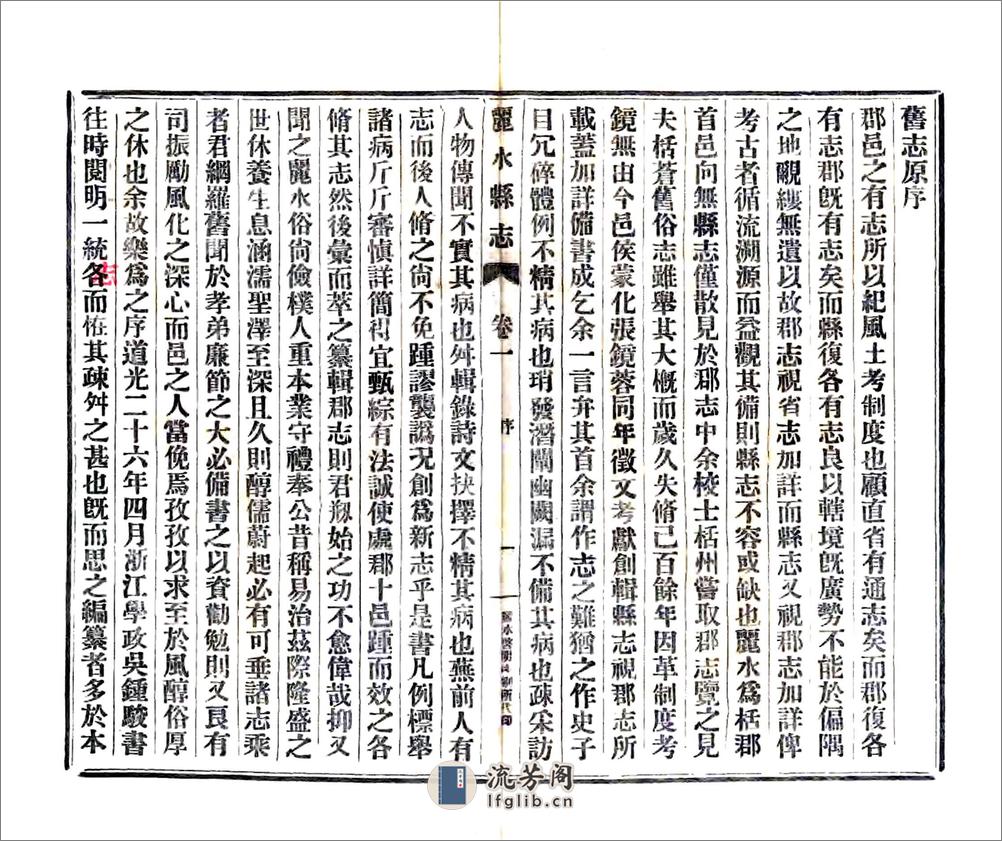 舊志原序
郡邑之有志所以紀風土考制度也顧直省有通志矣而郡復各
有志郡旣有志矣而縣復各有志良以轄境旣廣勢不能於偏隅
之地覼縷無遺以故郡志視省志加詳而縣志又視郡志加詳俾
考古者循流溯源而益觀其備則縣志不容或缺也麗水爲栝郡
首邑向無縣志僅散見於郡志中余校士栝州嘗取郡志覽之見
夫栝蒼舊俗志雖舉其大槪而歲久失脩已百餘年因革制度考
鏡無由今邑侯蒙化張鏡蓉同年徵文考獻創輯縣志視郡志所
載蓋加詳備書成乞余一言弁其首余謂作志之難猶之作史子
目冗碎體例不精其病也琑發潛闡幽闕漏不備其病也疎采訪
麗水縣志
卷一
序
一
麗水啓明印刷所代印
人物傳聞不實其病也舛輯錄詩文抉擇不精其病也蕪前人有
志而後人脩之尙不免踵謬襲譌况創爲新志乎是書凡例標舉
諸病斤斤審愼詳簡得宜甄綜有法誠使處郡十邑踵而效之各
脩其志然後彙而萃之纂輯郡志則君剏始之功不愈偉哉抑又
聞之麗水俗尙儉樸人重本業守禮奉公昔稱易治茲際隆盛之
世休養生息涵濡聖澤至深且久則醇儒蔚起必有可垂諸志乘
者君網羅舊聞於孝弟廉節之大必備書之以資勸勉則又良有
司振勵風化之深心而邑之人當俛焉孜孜以求至於風醇俗厚
之休也余故樂爲之序道光二十六年四月浙江學政吳鍾駿書
往時閱明一統各而恠其疎舛之甚也旣而思之編纂者多於本
志
流芳阁
lfglib.cn